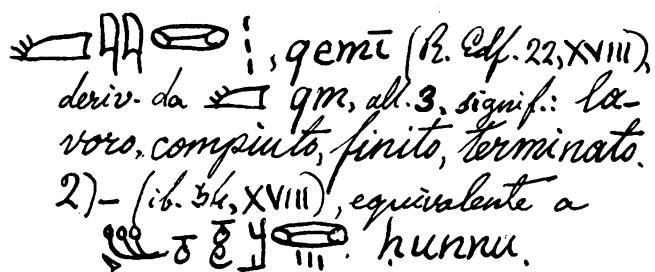 , qemī (R. Edf. 22, XVIII),
deriv. da qm, all. 3, signif.: la-
voro, compiuto, finito, terminato.
2)- (ib. 54, XVIII), equivalente a
hunnu.